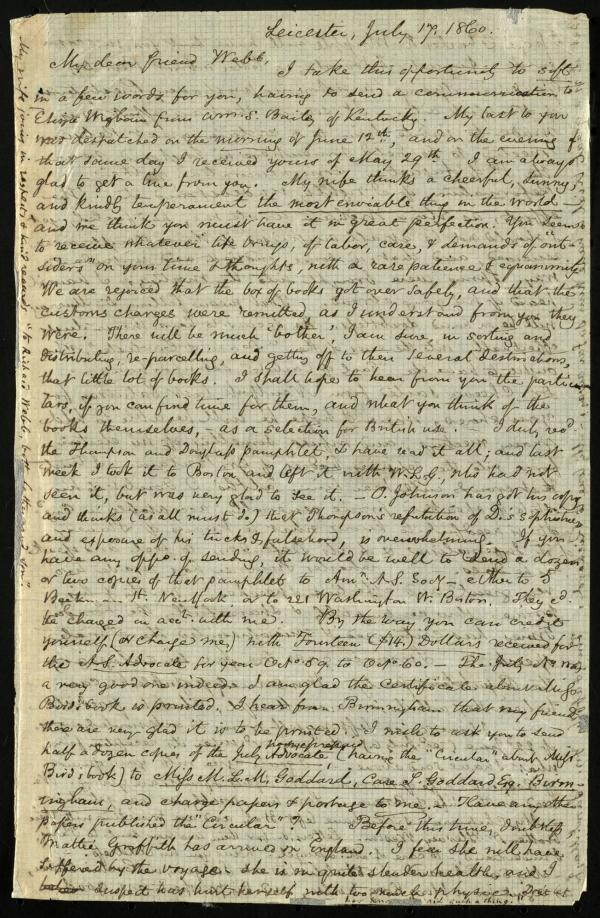 Leicester, July 17. 1860.
My dear friend Webb,
I take this opportunity to soft
in a few words for you, having to send a communication to
Eliza Wigham from Wm. S. Bailey of Kentucky. My last to you
was despatched on the morning of June 12th, and on the evening of
that same day I received yours of May 29th. I am always
glad to get a line from you. My wife thinks a cheerful, sunny,
and kindly temperament the most enviable thing in the world —
and we think you must have it in great perfection. You seem
to receive whatever life brings, of labor, care, & demands of "out-
siders" on your time & thoughts, with a rare patience & equanimity.
We are rejoiced that the box of books got over safely, and that the
customs charges were remitted, as I understand from you they
were. There will be much 'bother', I am sure, in sorting and
distributing, re-parcelling, and getting off to their several destinations,
that little lot of books. I shall hope to hear from you the particu-
lars, if you can find time for them, and what you think of the
books themselves, – as a selection for British use. I duly recd.
the Thompson and Douglass pamphlet, & have read it all; and last
week I took it to Boston and left it with W.L.G., who had not
seen it, but was very glad to see it. — O. Johnson has got his copy
and thinks (as all must do) that Thompson's refutation of D.'s sophisms
and exposure of his tricks & falsehood, is overwhelming. If you
have any oppy. of sending, it would be well to send a dozen
or two copies of that pamphlet to Amn. A.S. Socy – either to 5
Beekman St. New York or to 221 Washington St. Boston. They cd
be charged in acct. with me. By the way you can credit
yourself (or charge me,) with Fourteen ($14.) Dollars received for
the A.S. Advocate for year Oct. 59. to Oct. 60. — The July No. was
a very good one indeed. I am glad the certificate about
Bird's book is printed. I hear from Birmingham that my friends
there are very glad it is to be printed. I wish to ask you to send
half a dozen copies of the July Advocate, (having the "Circular" about Miss
Bird's book) to Miss M. L. M. Goddard, Care S. Goddard Esq. Birm-
ingham, and charge papers & postage to me. — Have any other
papers published the "Circular"? Before this time, doubtless,
Mattie Griffith has arrived in England. I fear she will have
suffered by the voyage – she is in quite slender health, and I
suspect has hurt herself with too much physic.
My wife joins in respects & kind regards to Richard Webb,